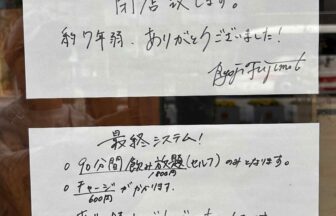 閉店致します。
約7年弱、ありがとうございました!
Ryoji Fujimoto
最終システム!
○ 90分間飲み放題(セルフ)のみとなります。
1800円
○ チャージがかかります。
600円